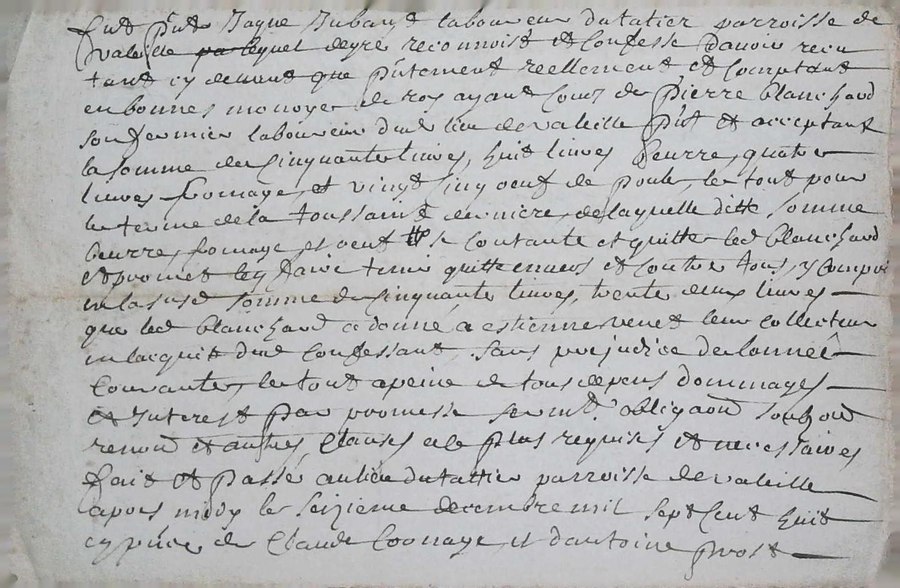 fut p̃nt Jaque Jubaud laboureur dutatier parroisse de
valeille par lequel degre reconnoist et confesse davoir recu
tant cy devant que p̃ntement reellement et comptant
en bonnes monoyes de roy ayant cours de pierre blanchard
son fermier laboureur dud lieu de valeille p̃nt et acceptant
la somme de cinquante livres, huit livres beurre, quatre
livres fromage, et vingt cinq oeuf de poule, le tout pour
le terme de la toussaint derniere, de laquelle ditte somme
beurre, fromage et oeuf se contante et quitte led blanchard
et promet len faire tenir quitte envers et contre tous, y compris
en la susd somme de cinquante livres, trente deux livres
que led blanchard a donné a estienne venet leur collecteur
en lacquit dud confessant, sans prejudice de lannéé
courante, le tout a peine de tous depens dommages
et interest par promesse serm̃t obligaõn soubõn
renõn et autres clauses a ce plus requises et necessaires
fait et passé au lieu dutattier parroisse de valeille
apres midy le seizieme decembre mil sept cent huit
cy p̃nce de Claude Coonage, et dantoine prost